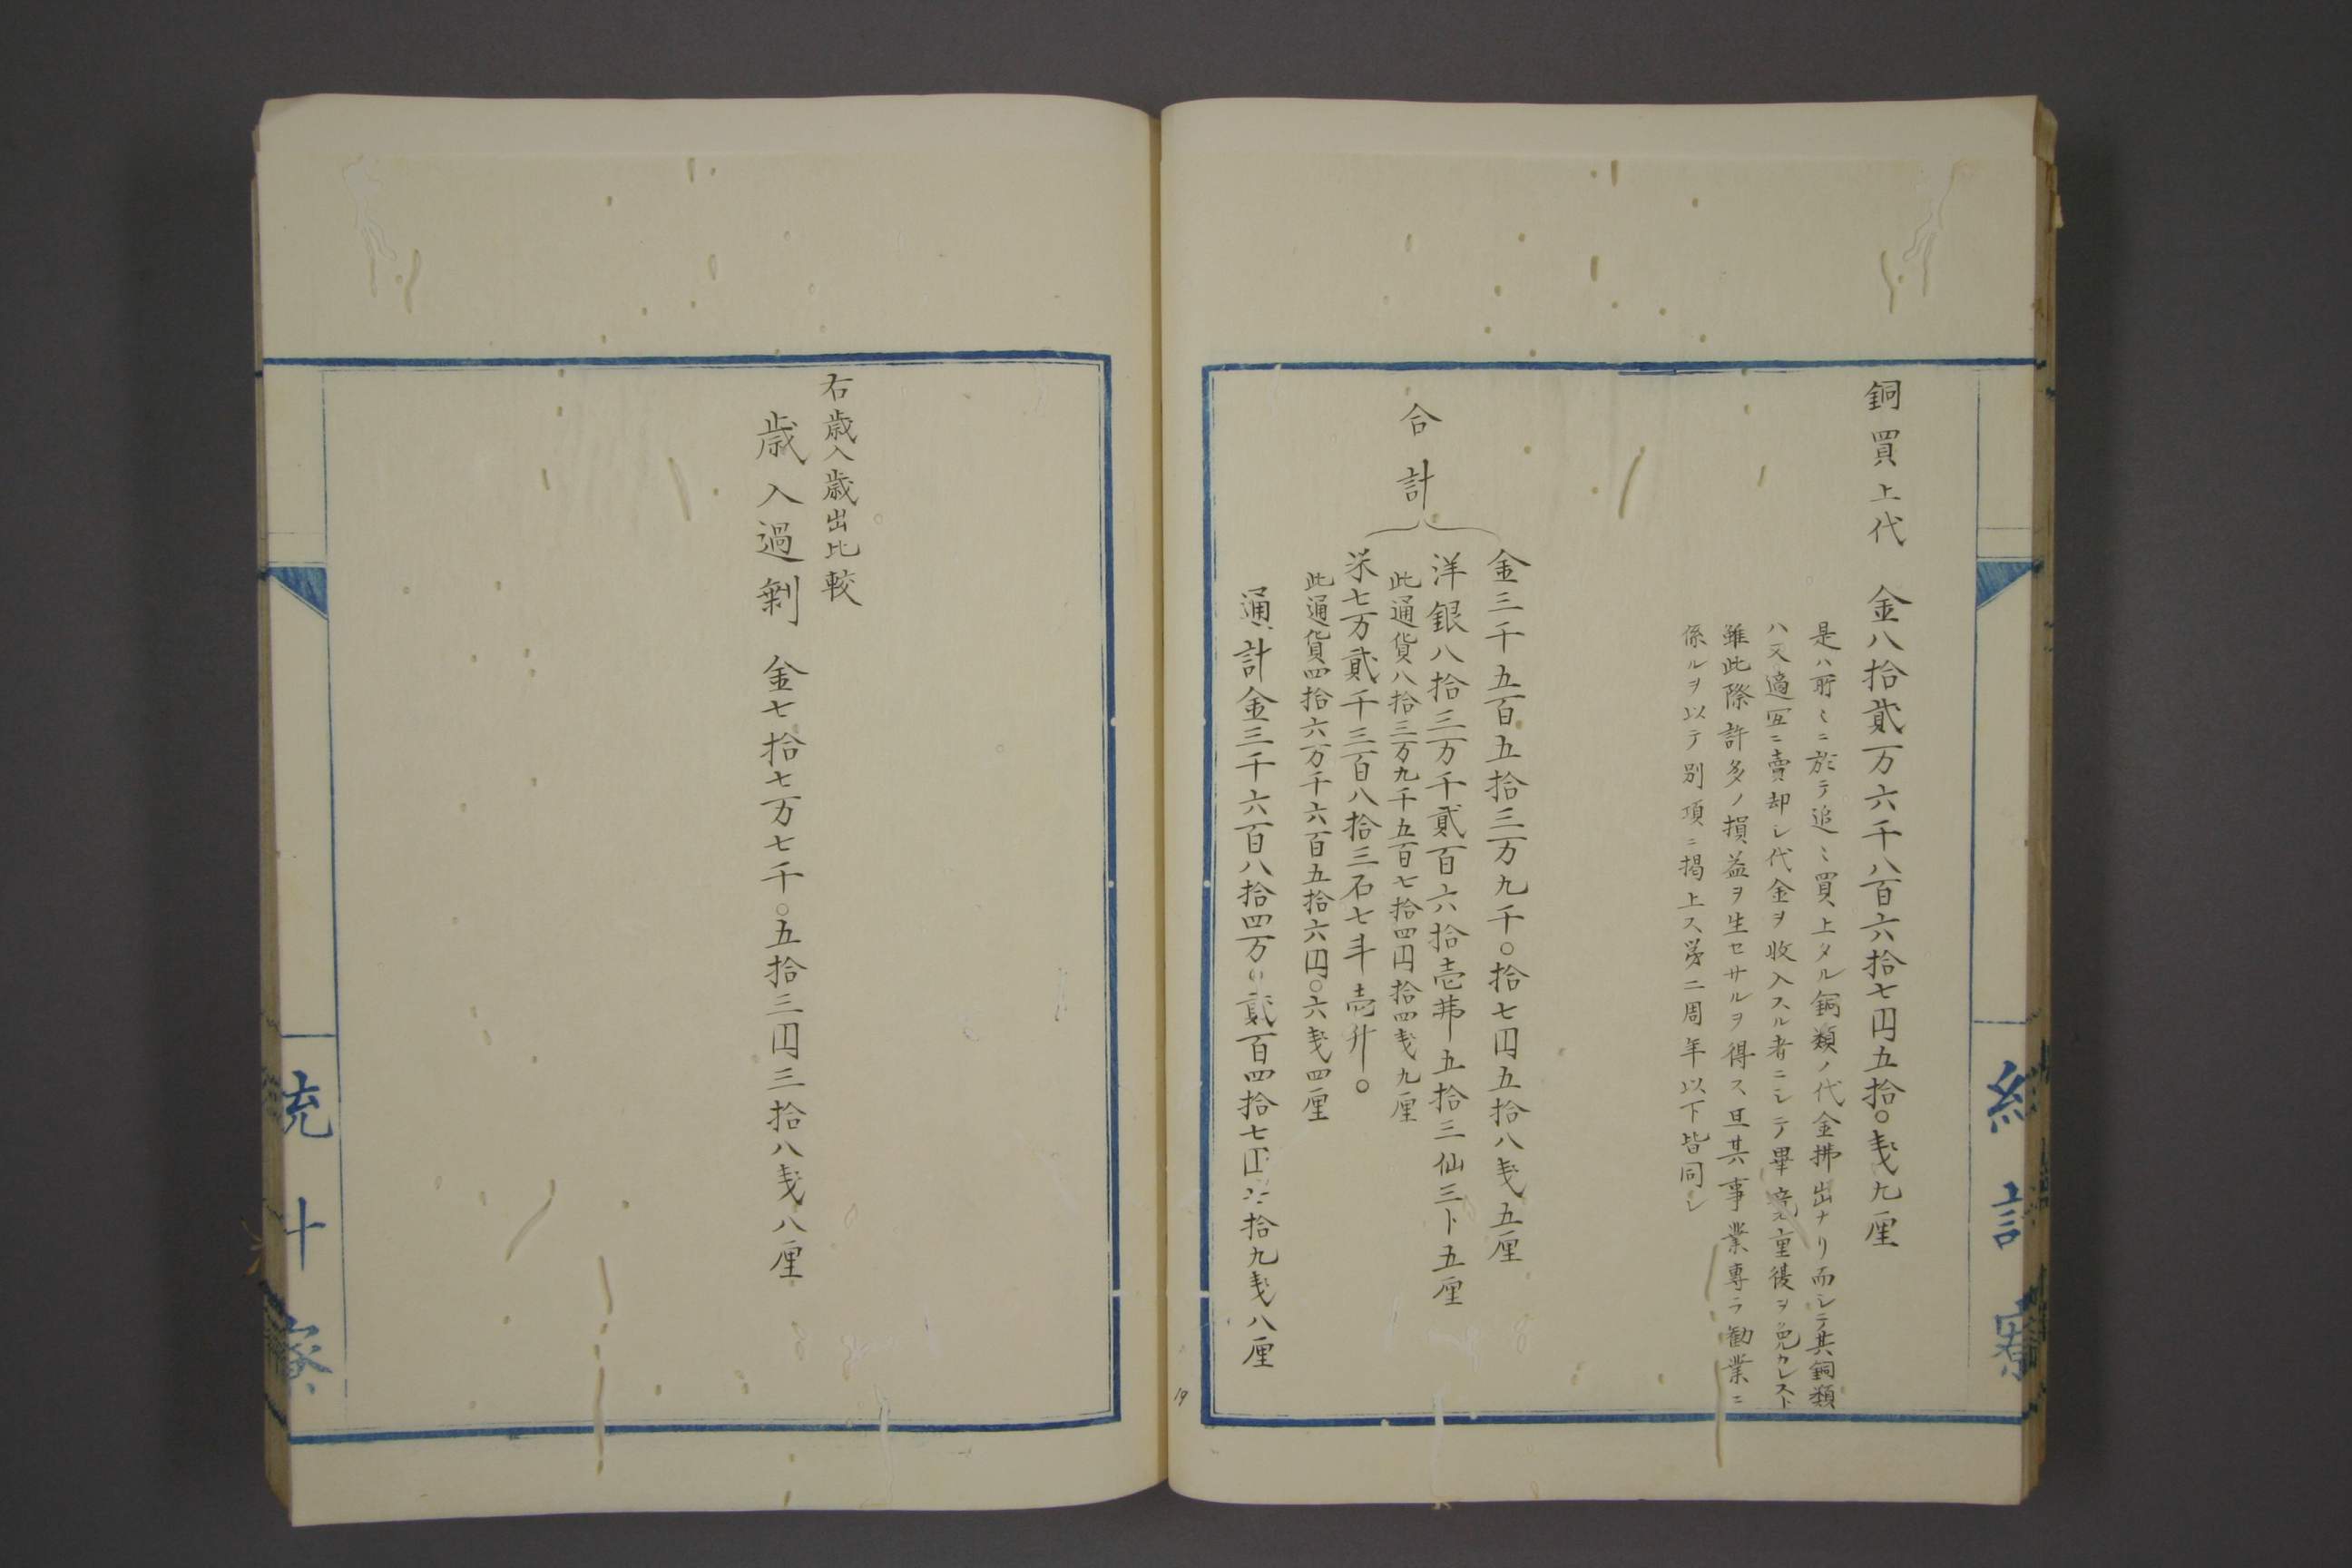 銅買上代 金八拾貳万六千八百六拾七円五拾〇戔九厘
是ハ所々ニ於テ追々買上タル銅類ノ代金拂出ナリ而シテ其銅類
ハ又適宜ニ賣却シ代金ヲ收入スル者ニシテ畢竟重復ヲ免カレスト
雖此際許多ノ損益ヲ生セサルヲ得ス且其事業專ラ勧業ニ
係ルヲ以テ別項ニ掲上ス第二周年以下皆同シ
合計
金三千五百五拾三万九千〇拾七円五拾八戔五厘
洋銀八拾三万千貳百六拾壱弗五拾三仙三卜五厘
此通貨八拾三万九千五百七拾四円拾四戔九厘
米七万貳千三百八拾三石七斗壱升〇
此通貨四拾六万千六百五拾六円〇六戔四厘
通計金三千六百八拾四万〇貳百四拾七円七拾九戔八厘
統計寮
右歳入歳出比較
歳入過剰 金七拾七万七千〇五拾三円三拾八戔八厘
統計寮
19